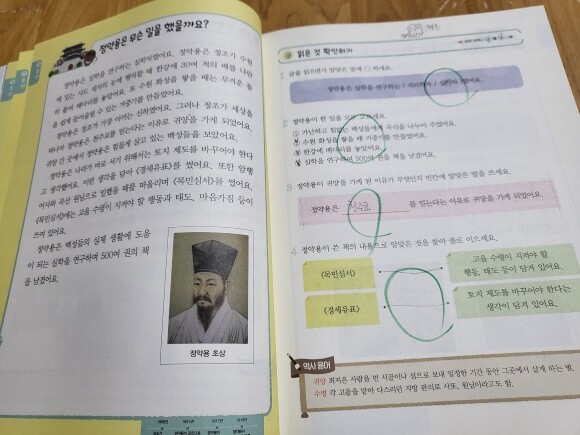 정약용은 무슨 일을 했을까요?
정약용은 실학을 연구하는 실학자였어요. 정약용은 정조가 수원
에 있는 사도 세자의 능에 행차할 때 한강에 30여 척의 배를 나란
히 붙여 배다리를 놓았어요. 또 수원 화성을 쌓을 때는 무거운 돌
을 쉽게 들어올릴 수 있는 거중기를 만들었어요.
정약용은 정조가 가장 아끼는 신하였어요. 그러나 정조가 세상을
떠나자 정약용은 천주교를 믿는다는 이유로 귀양을 가게 되었어요.
귀양 간 곳에서 정약용은 힘들게 살고 있는 백성들을 보았어요.
정약용은 나라가 바로 서기 위해서는 토지 제도를 바꾸어야 한다
고 생각했어요. 이런 생각을 담아 《경세유표》를 썼어요. 또한 암행
어사와 부산 원님으로 일했을 때를 떠올리며 《목민심서》를 썼어요.
《목민심서》에는 고을 수령이 지켜야 할 행동과 태도, 마음가짐 등이
쓰여 있어요.
정약용은 백성들의 실제 생활에 도움
이 되는 실학을 연구하며 500여 권의 책
을 남겼어요.
정약용 초상
읽은 것 확인하기
글을 읽으면서 알맞은 말에 ○ 하세요.
정약용은 실학을 연구하는 ( 실학자 )였어요.
2 정약용이 한 일을 모두 고르세요.
① 가난하고 힘없는 백성들에게 곡식을 나누어 주었어요.
② 수원 화성을 쌓을 때 거중기를 만들었어요.
③ 한강에 배다리를 놓았어요.
④ 실학을 연구하며 500여 권의 책을 남겼어요.
3 정약용이 귀양을 가게 된 이유가 무엇인지 빈칸에 알맞은 말을 쓰세요.
정약용은 천주교 를 믿는다는 이유로 귀양을 가게 되었어요.
4 정약용이 쓴 책의 내용으로 알맞은 것을 찾아 줄로 이으세요.
《목민심서》
고을 수령이 지켜야 할
행동, 태도 등이 담겨 있어요.
《경세유표》
토지 제도를 바꾸어야 한다는
생각이 담겨 있어요.
역사 용어
귀양 죄지은 사람을 먼 시골이나 섬으로 보내 일정한 기간 동안 그곳에서 살게 하는 벌.
수령 각 고을을 맡아 다스리던 지방 관리로 사또, 원님이라고도 함.